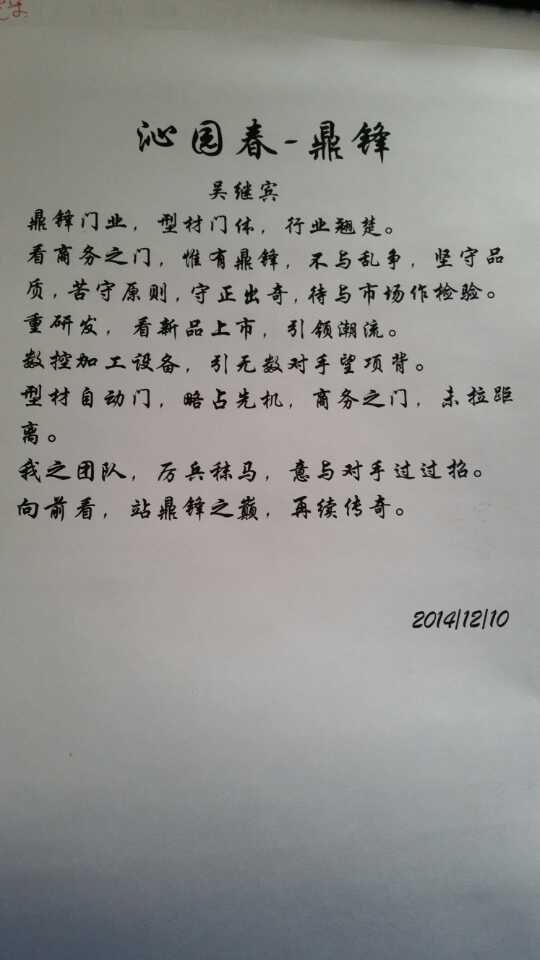 沁园春-鼎锋
吴继宾
鼎锋门业，型材门体，行业翘楚。
看商务之门，惟有鼎锋，不与乱争，坚守品
质，苦守原则，守正出奇，待与市场作检验。
重研发，看新品上市，引领潮流。
数控加工设备，引无数对手望项背。
型材自动门，略占先机，商务之门，未拉距
离。
我之团队，厉兵秣马，意与对手过过招。
向前看，站鼎锋之巅，再续传奇。
2014/12/10